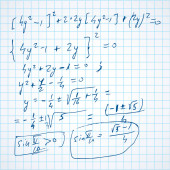 [4y²-1]²+2·2y[4y²-1]+(2y)²=0
{4y²-1+2y}²=0
4y²+2y-1=0;
y²+y/2-1/4=0
y=-1/4±√(1/16+1/4)=
=-1/4±√5 = (-1±√5)/4
sin π/10>0 sin π/10 = (√5-1)/4